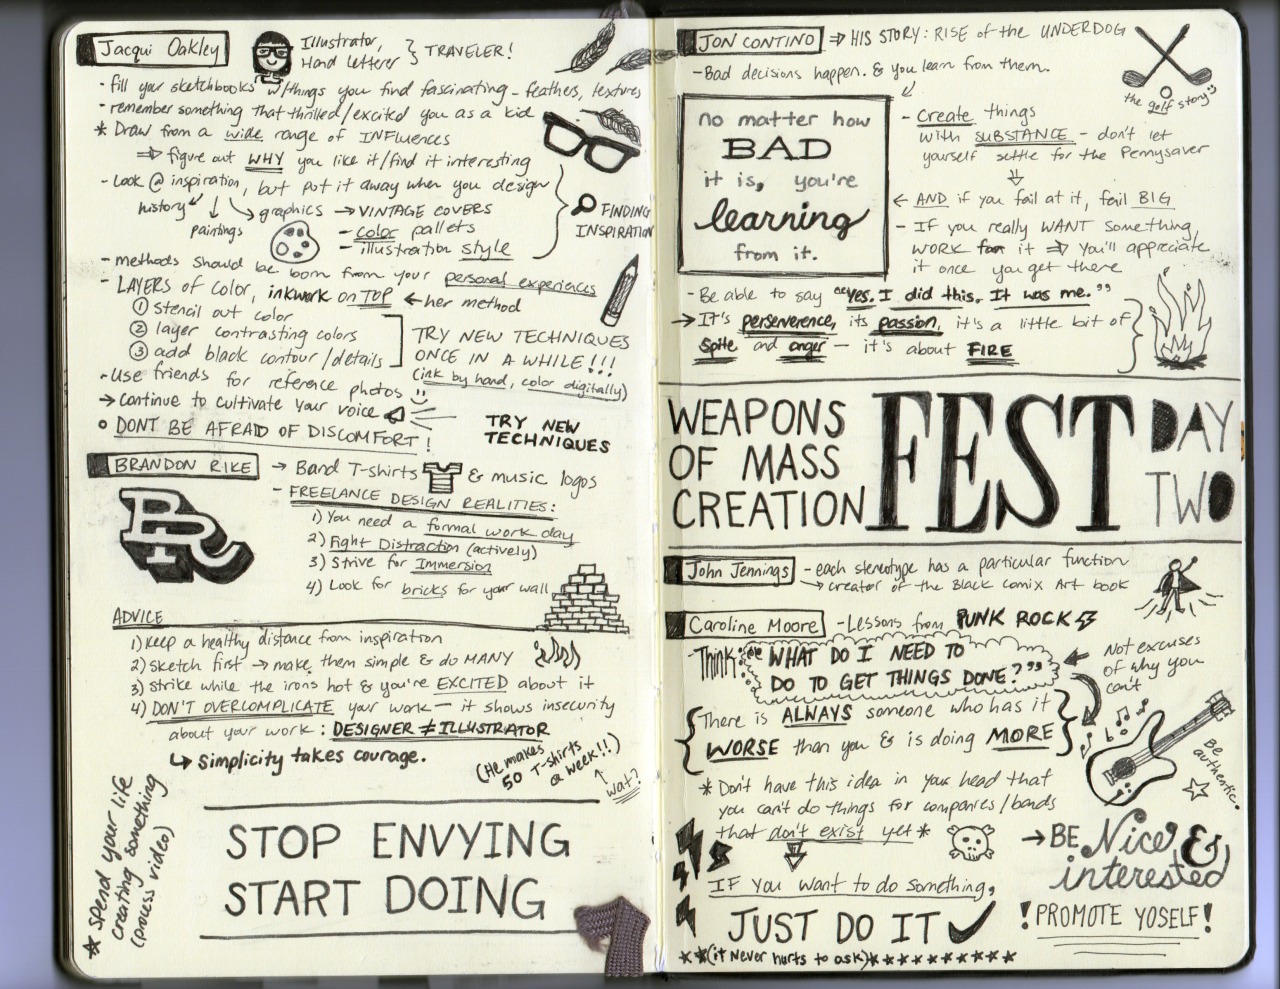 Jacqui Oakley
Illustrator,
Hand Letterer } TRAVELER!
- fill your sketchbooks w/things you find fascinating - feathers, textures
- remember something that thrilled/excited you as a kid
* Draw from a wide range of INFluences
⇒ figure out WHY you like it/find it interesting
- Look @ inspiration, but put it away when you design
history
paintings
graphics → VINTAGE COVERS
- color pallets
- illustration style
FINDING
INSPIRATION
- methods should be born from your personal experiences
- LAYERS of COLOR, inkwork on TOP ← her method
① stencil out color
② layer contrasting colors
③ add black contour/details
TRY NEW TECHNIQUES
ONCE IN A WHILE!!!
(ink by hand, color digitally)
- Use friends for reference photos
→ continue to cultivate your voice
DONT BE AFRAID OF DISCOMFORT!
TRY NEW
TECHNIQUES
BRANDON RIKE
→ Band T-shirts & music logos
BR
- FREELANCE DESIGN REALITIES:
1) You need a formal work day
2) Fight Distraction (actively)
3) Strive for Immersion
4) Look for bricks for your wall
ADVICE
1) Keep a healthy distance from inspiration
2) Sketch first → make them simple & do MANY
3) Strike while the irons hot & you're EXCITED about it
4) DON'T OVERCOMPLICATE your work — it shows insecurity
about your work: DESIGNER ≠ ILLUSTRATOR
↳ Simplicity takes courage.
(He makes
50 T-shirts
a week!!)
wat?
* Spend your life
creating something
(process video)
STOP ENVYING
START DOING
JON CONTINO ⇒ HIS STORY: RISE of the UNDERDOG
- Bad decisions happen. & you learn from them.
the golf story
no matter how
BAD
it is, you're
learning
from it.
- Create things
with SUBSTANCE - don't let
yourself settle for the Pennysaver
← AND if you fail at it, fail BIG
- IF you really WANT something,
WORK for it ⇒ You'll appreciate
it once you get there
- Be able to say "Yes. I did this. It was me."
→ It's perseverence, its passion, it's a little bit of
Spite and anger — it's about FIRE
WEAPONS
OF MASS
CREATION
FEST
DAY
TWO
John Jennings
- each stereotype has a particular function
→ creator of the Black Comix Art book
Caroline Moore
- Lessons from PUNK ROCK
- Think: "WHAT DO I NEED TO
DO TO GET THINGS DONE?"
Not excuses
of why you
can't
{There is ALWAYS someone who has it
WORSE than you & is doing MORE}
Be
authentic.
* Don't have this idea in your head that
you can't do things for companies/bands
that don't exist yet *
→ BE Nice &
interested
IF you want to do something,
JUST DO IT ✓
!PROMOTE YOSELF!
**(it never hurts to ask)**********